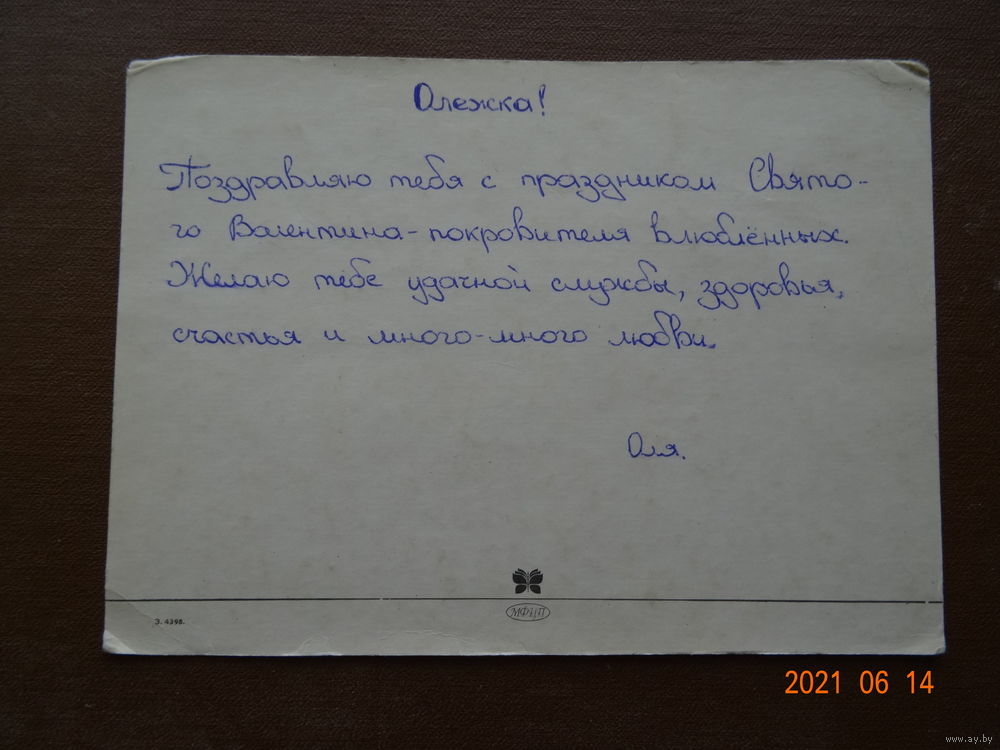 Олежка!
Поздравляю тебя с праздником Свято-
го Валентина-покровителя влюблённых.
Желаю тебе удачной службы, здоровья,
счастья и много-много любви.
Оля.
МФЦП
З. 4398.
2021 06 14
www.ay.by